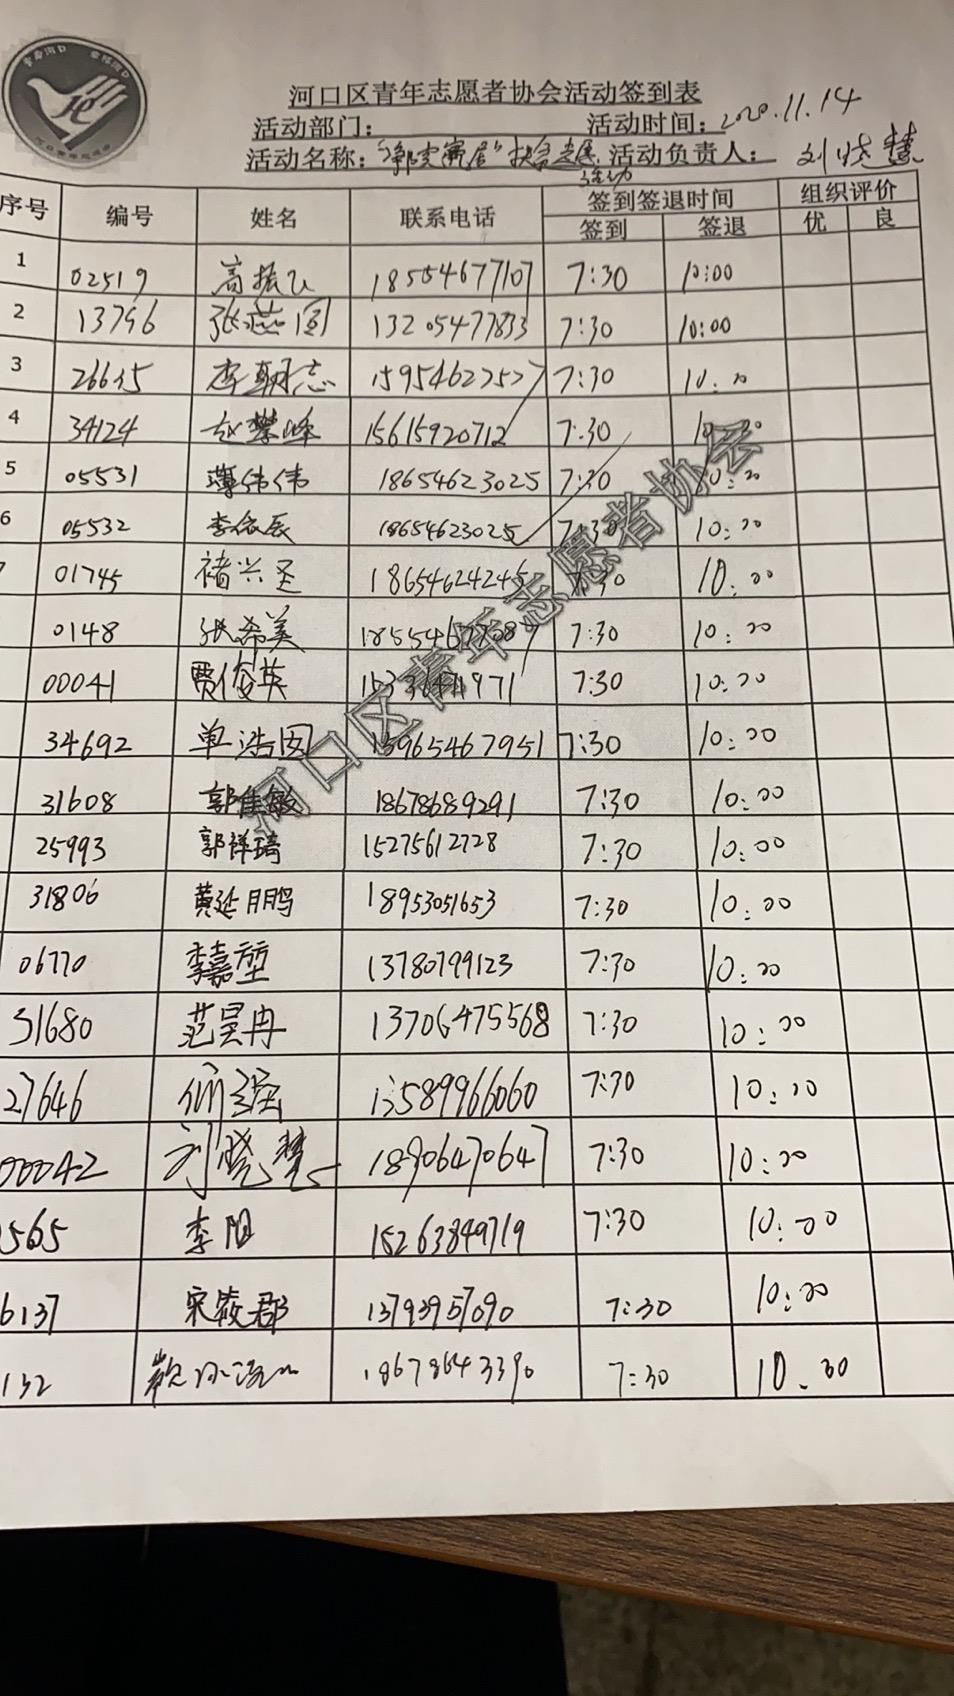 河口区青年志愿者协会活动签到表
活动部门： 活动时间：2020.11.14
活动名称： 活动负责人： 刘晓慧
活动
序号 编号 姓名 联系电话 签到签退时间 组织评价
签到 签退 优 良
1 02519 高振飞 18554677107 7:30 10:00
2 13796 张燕 13205477833 7:30 10:00
3 李朝志 15954622527 7:30 10:00
4 34124 赵攀峰 15615920712 7:30 10:00
5 05531 薄伟伟 18654623025 7:30 10:00
6 05532 李依辰 18654623025 7:30 10:00
01745 褚兴圣 18654624245 7:30 10:00
0148 张希美 7:30 10:00
00041 贾俊英 7:30 10:00
34692 单浩 13965467951 7:30 10:00
31608 郭佳敏 18678689291 7:30 10:00
25993 郭祥琦 15275612728 7:30 10:00
31806 黄延鹏 18953051653 7:30 10:00
06770 李嘉堃 13780799123 7:30 10:00
31680 范昊冉 13706475568 7:30 10:00
27646 13589966060 7:30 10:00
00042 刘晓慧 18906470647 7:30 10:00
565 李阳 15263849719 7:30 10:00
6137 宋筱郡 13793957090 7:30 10:00
132 18678643390 7:30 10.00
河口区青年志愿者协会